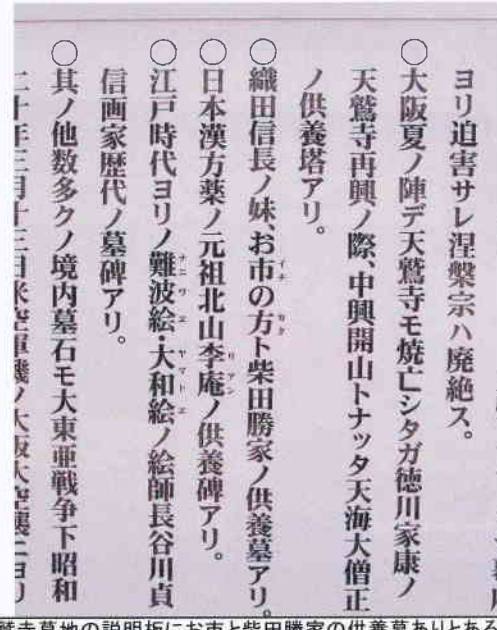 ヨリ迫害サレ涅槃宗ハ廃絶ス。
○大阪夏ノ陣デ天鷲寺モ焼亡シタガ徳川家康ノ
天鷲寺再興ノ際、中興開山トナッタ天海大僧正
ノ供養塔アリ。
○織田信長ノ妹、お市の方ト柴田勝家ノ供養墓アリ。
○日本漢方薬ノ元祖北山李庵ノ供養碑アリ。
○江戸時代ヨリノ難波絵・大和絵ノ絵師長谷川貞
信画家歴代ノ墓碑アリ。
○其ノ他数多クノ境内墓石モ大東亜戦争下昭和
二十年三月十三日米空軍機ノ大阪大空襲ニヨリ
鷲寺墓地の説明板にお市と柴田勝家の供養墓ありとある